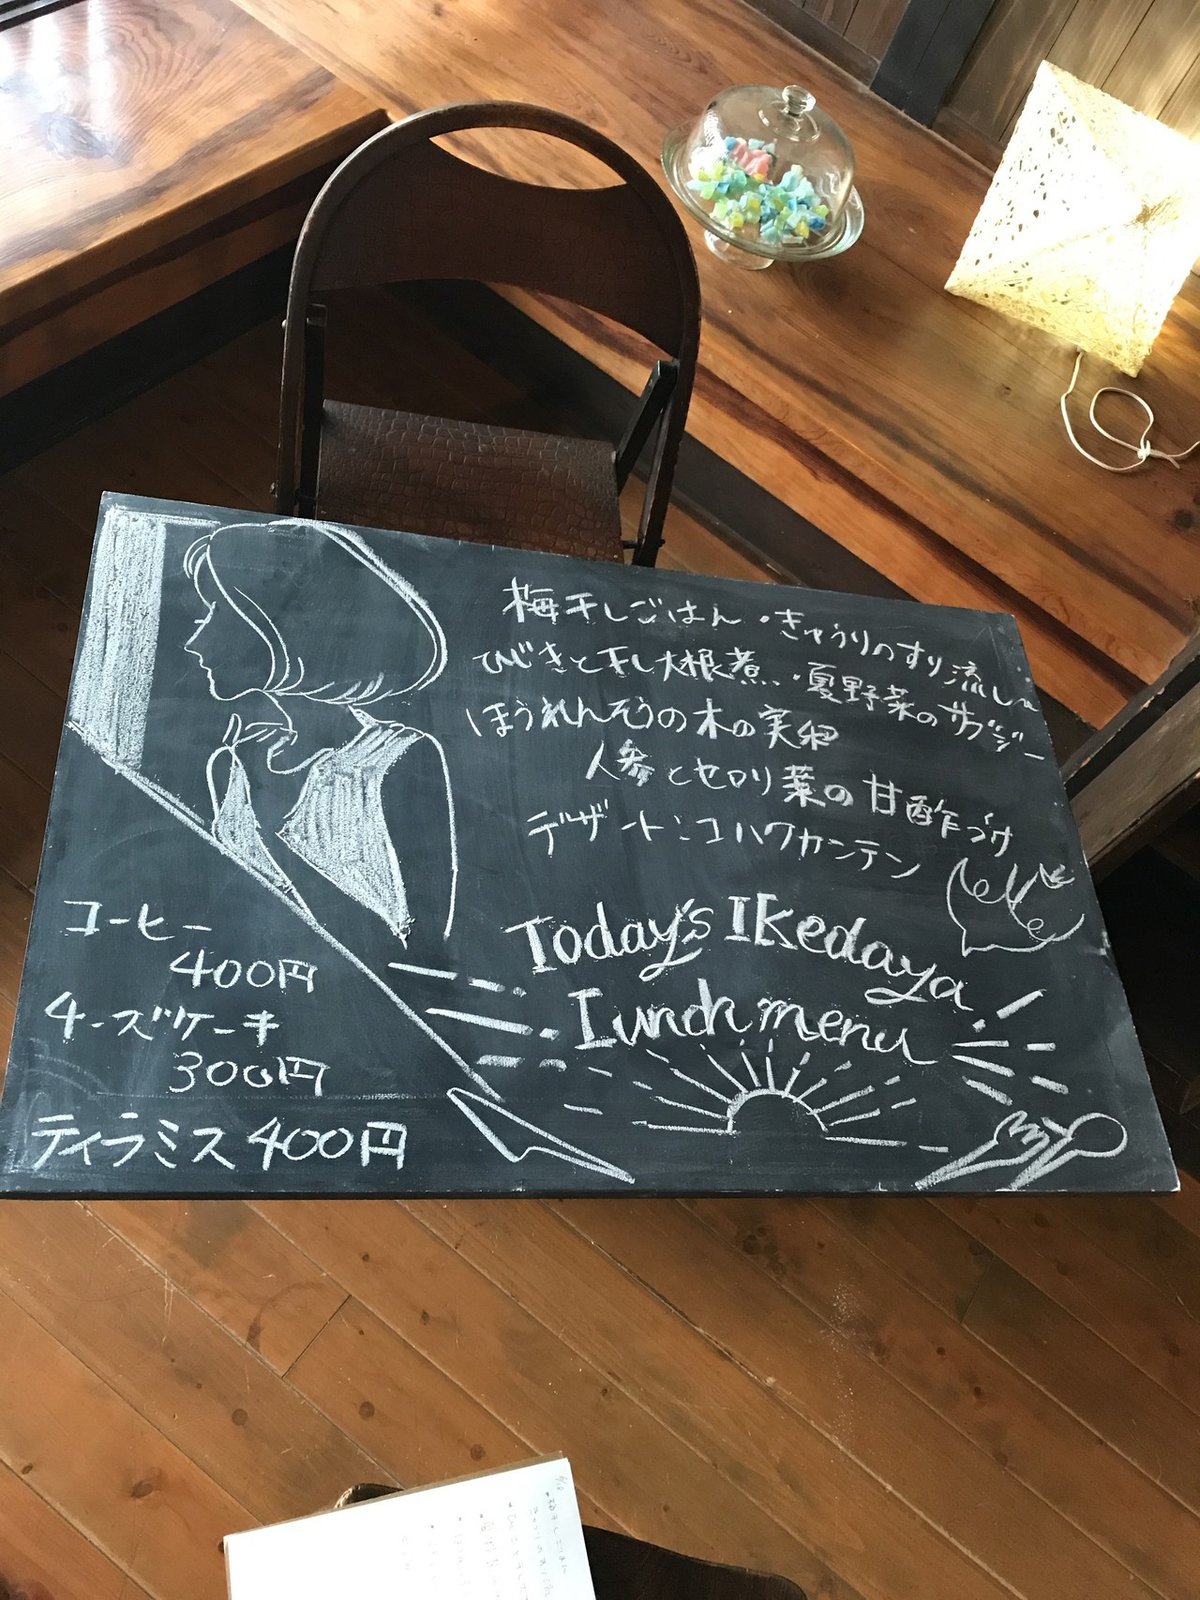 梅干しごはん・きゅうりのすり流し
ひじきと干し大根煮・夏野菜のサブジー
ほうれんそうの木の実和
人参とセロリ葉の甘酢づけ
デザート:コハクカンテン
Today's IKedaya
Lunch menu
コーヒー
400円
チーズケーキ
300円
ティラミス 400円